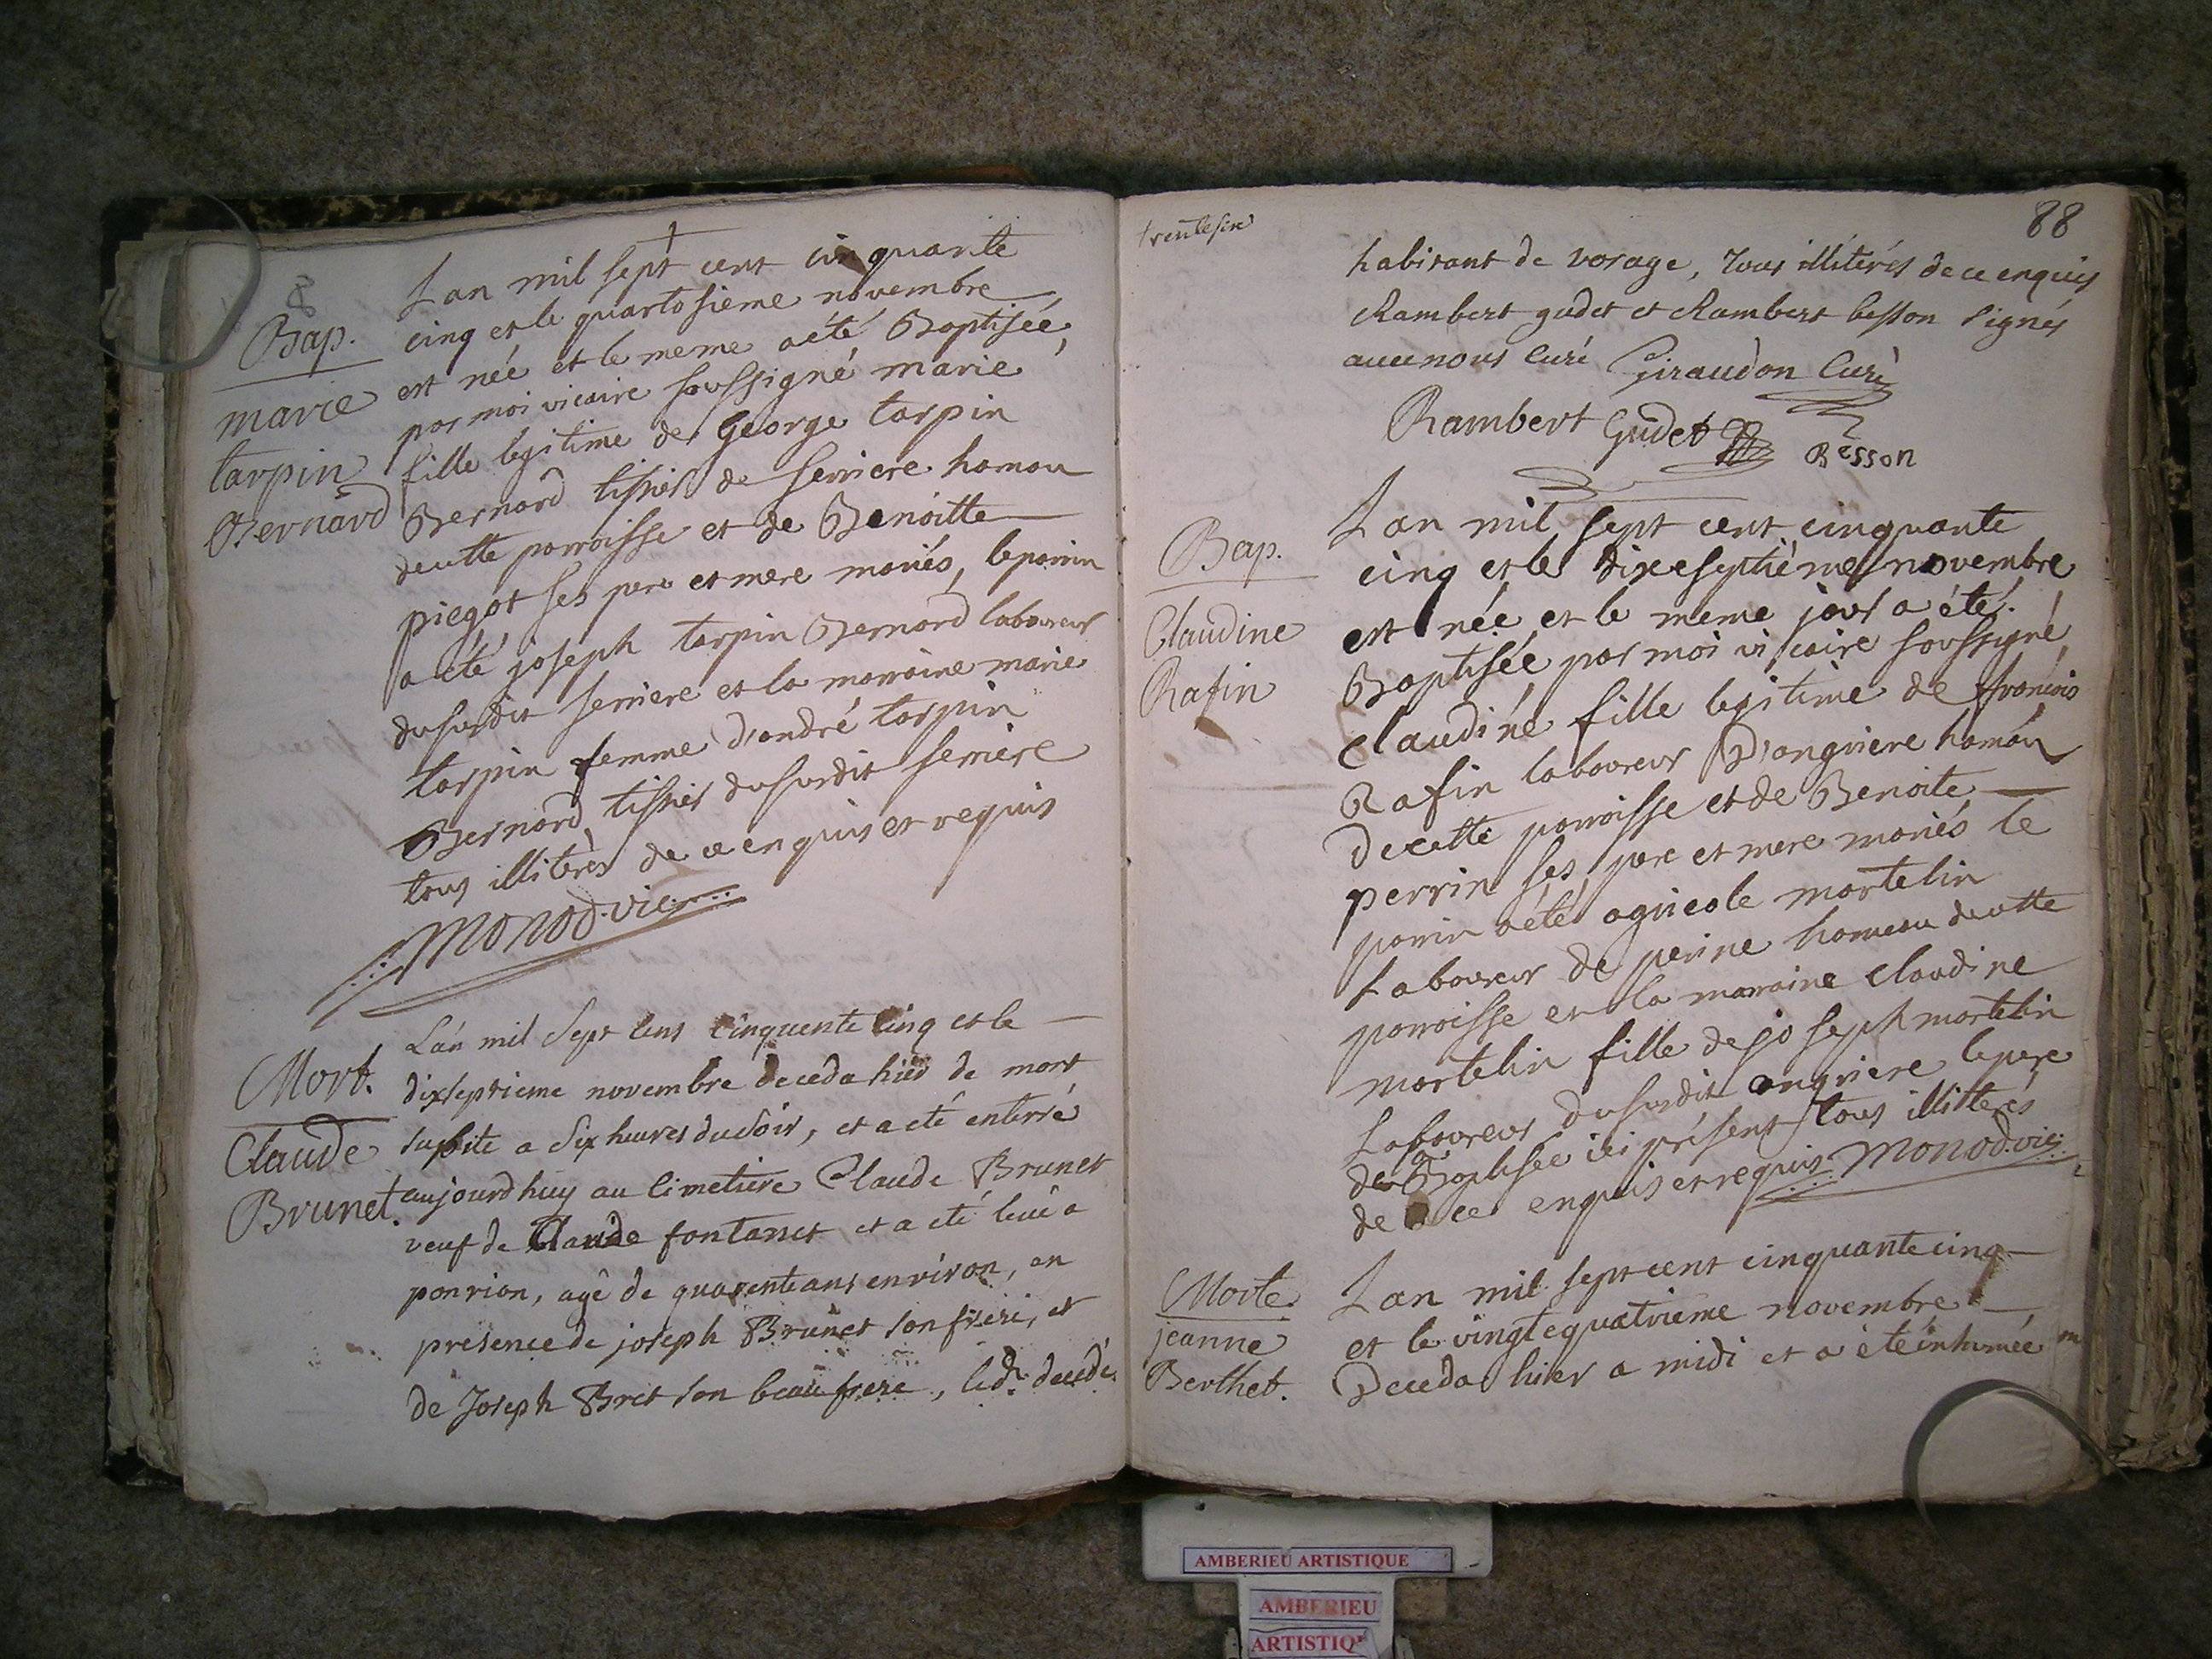 Bap.
marie
tarpin
Bernard
Lan mil sept cent cinquante
cinq et le quartosieme novembre
est née et le meme a été Baptisée,
par moi vicaire soussigné marie
fille legitime de George tarpin
Bernard tissier de serriere hamau
de cette parroisse et de Benoitte
piegot ses pere et mere mariés, le parrin
a été joseph tarpin Bernard laboureur
du susdit serriere et la marraine marie
tarpin femme d'andré tarpin
Bernard, tissier du susdit serriere
tous illiterés de ce enquis et requis
monod. vic.
Mort.
Claude
Brunet.
L'an mil sept cens cinquente cinq et le
dixseptieme novembre deceda hier de mort
subite a six heures du soir, et a eté enterré
aujourdhuy au cimetiere Claude Brunet
veuf de Claude fontanet et a eté levé a
ponrion, agé de quarente ans environ, en
presence de joseph Brunet son frere, et
de Joseph Bret son beaufrere, led. decedé
trentesixe
88
habitant de vorage, tous illiterés de ce enquis
Rambert gudet et Rambert besson signés
avec nous curé Giraudon Curé
Rambert Gudet Besson
Bap.
Claudine
Rafin
Lan mil sept cent cinquante
cinq et le dixeseptiéme novembre
est née et le meme jour a été.
Baptisée par moi vicaire soussigné
claudine fille legitime de francois
Rafin laboureur D'angriere hamau
de cette parroisse et de Benoite
perrin ses pere et mere mariés le
parrin a été agricole martelin
Laboureur de perine hameau de cette
parroisse et la marraine claudine
martelin fille de joseph martelin
Laboureur du susdit angriere le pere
de la Baptisée ici présent tous illitterés
de ce enquis et requis monod. vic.
Morte.
jeanne
Berthet.
Lan mil sept cent cinquante cinq
et le vingtequatrieme novembre
Deceda hier a midi et a été inhumée
AMBERIEU ARTISTIQUE
AMBERIEU
ARTISTIQ